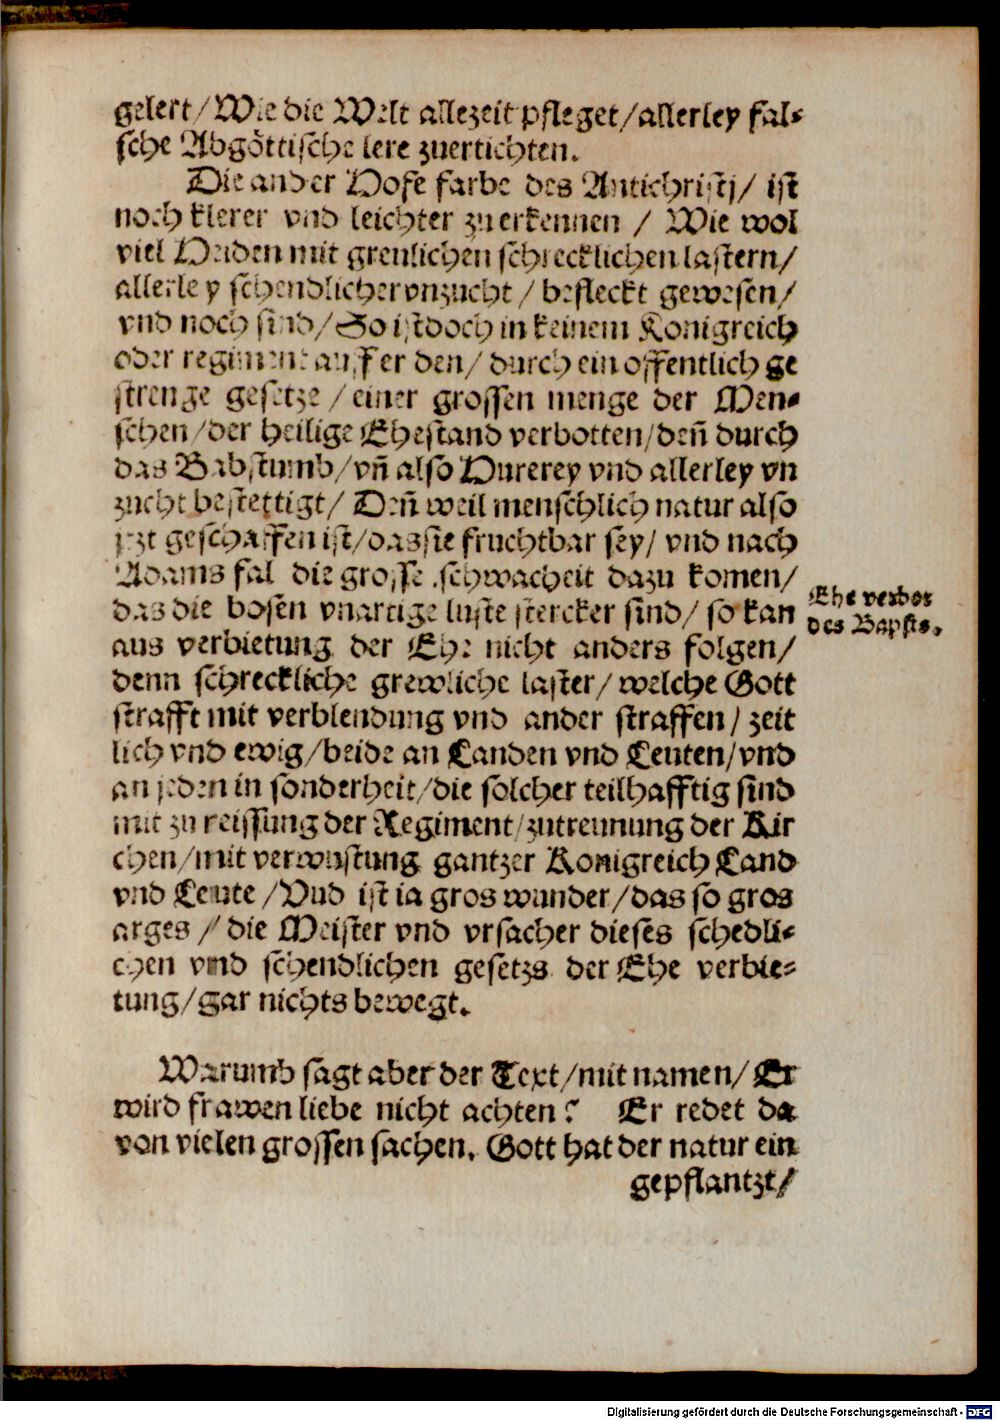 gelert/Wie die Welt allezeit pfleget/allerley fal⸗
sche Abgöttische lere zuertichten.
Die ander Hofe farbe des Antichristj/ ist
noch klerer vnd leichter zu erkennen / Wie wol
viel Heiden mit greulichen schrecklichen lastern/
allerley schendlicher vnzucht / befleckt gewesen/
vnd noch sind/ So ist doch in keinem Konigreich
oder regiment auffer den/ durch ein offentlich ge
strenge gesetze / einer grossen menge der Men⸗
schen/der heilige Ehestand verbotten/deñ durch
das Babstumb/vñ also Hurerey vnd allerley vn
zucht bestettigt/ Deñ weil menschlich natur also
jtzt geschaffen ist/das sie fruchtbar sey/ vnd nach
Adams fal die grosse schwacheit dazu komen/
das die bosen vnartige luste stercker sind/ so kan
aus verbietung der Ehe nicht anders folgen/
denn schreckliche grewliche laster/ welche Gott
strafft mit verblendung vnd ander straffen/ zeit
lich vnd ewig/beide an Landen vnd Leuten/vnd
an jeden in sonderheit/die solcher teilhafftig sind
mit zu reissung der Regiment/zutrennung der Kir
chen/mit verwustung gantzer Konigreich Land
vnd Leute /Vnd ist ia gros wunder/das so gros
arges / die Meister vnd vrsacher dieses schedli⸗
chen vnd schendlichen gesetzs der Ehe verbie⸗
tung/gar nichts bewegt.
Ehe verbot
des Bapsts.
Warumb sagt aber der Text/mit namen/ Er
wird frawen liebe nicht achten? Er redet da
von vielen grossen sachen. Gott hat der natur ein
gepflantzt/
Digitalisierung gefördert durch die Deutsche Forschungsgemeinschaft - DFG